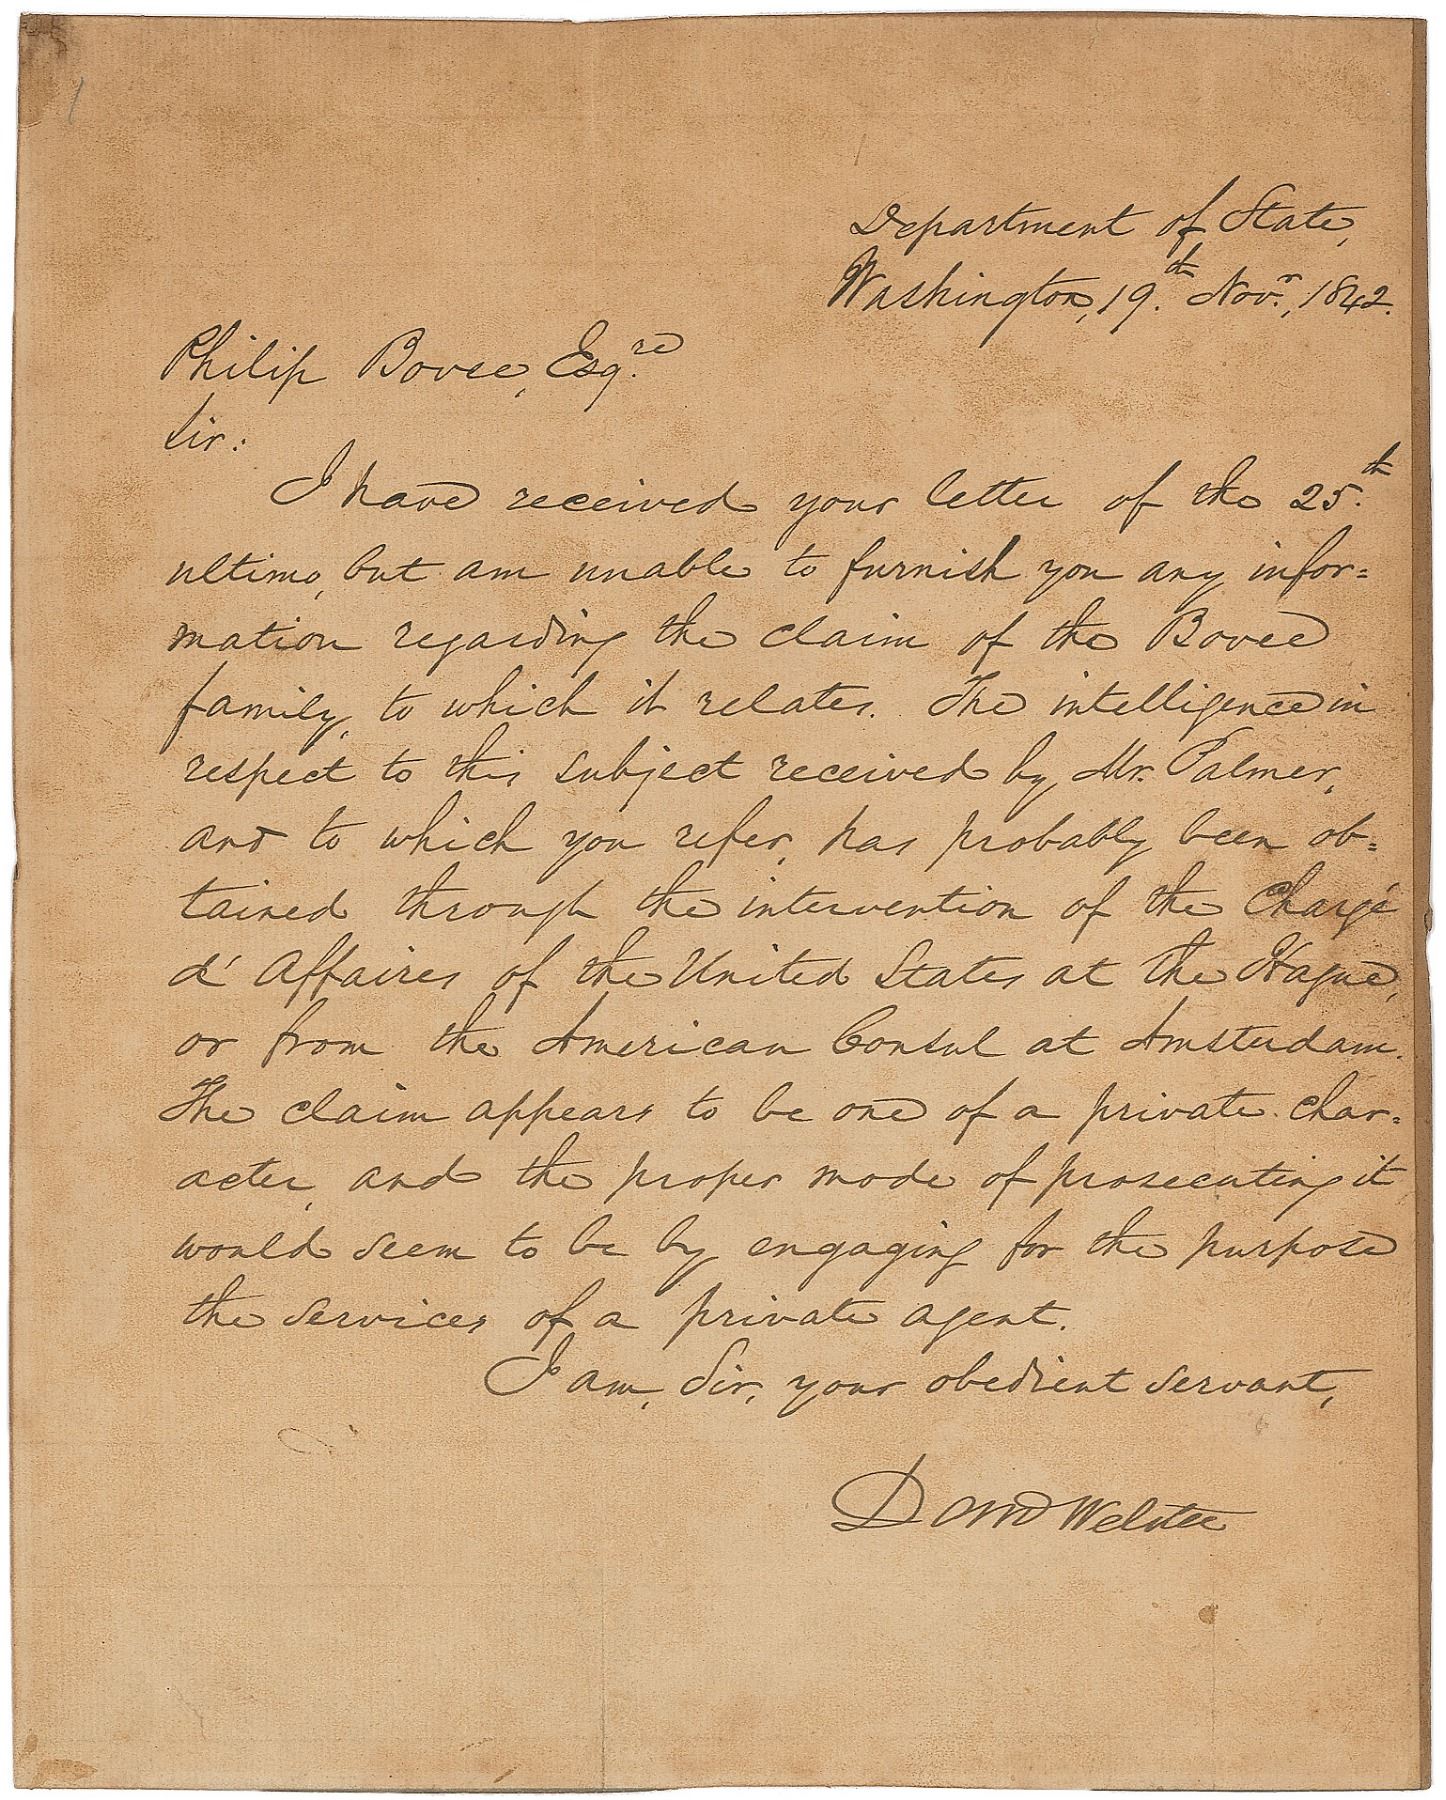 Department of State,
Washington, 19.th Novr., 1842.
Philip Bovee, Esqre
Sir:
I have received your letter of the 25.th
ultimo, but am unable to furnish you any infor=
mation regarding the claim of the Bovee
family, to which it relates. The intelligence in
respect to this subject received by Mr. Palmer,
and to which you refer, has probably been ob=
tained through the intervention of the Chargé
d' Affaires of the United States at the Hague,
or from the American Consul at Amsterdam.
The claim appears to be one of a private char=
acter, and the proper mode of prosecuting it
would seem to be by engaging for the purpose
the services of a private agent.
I am, Sir, your obedient servant,
Danl Webster